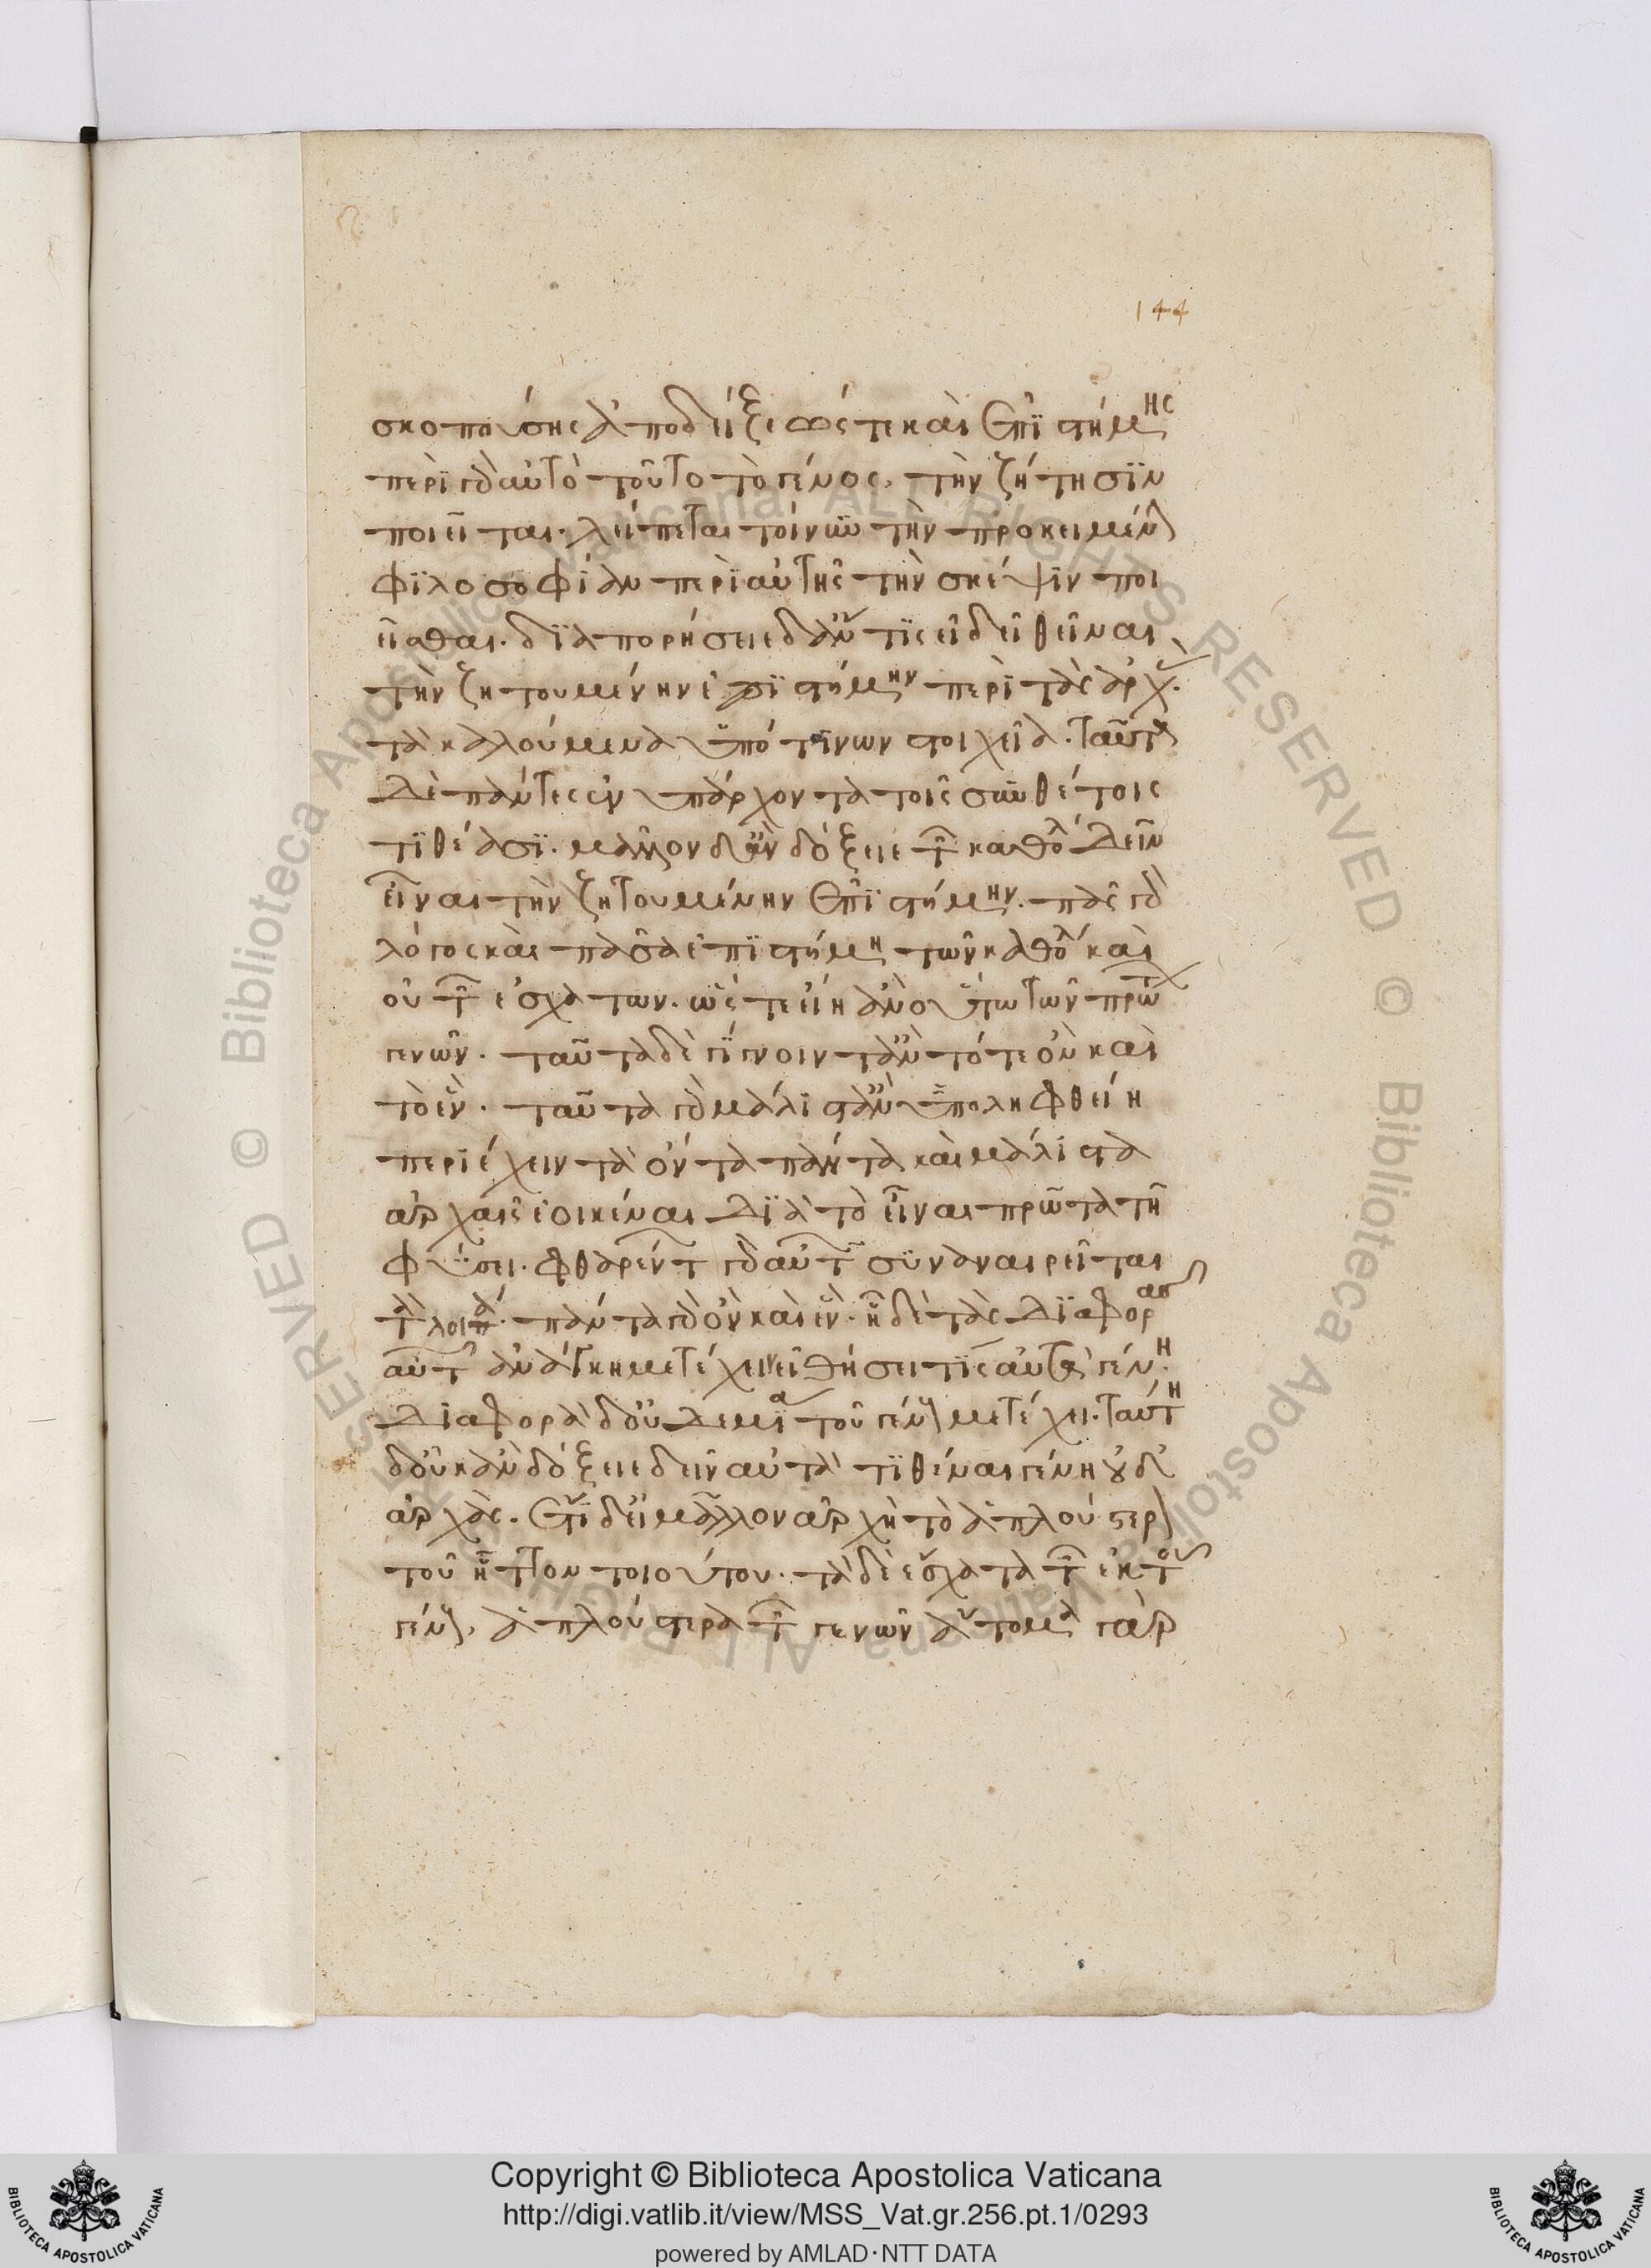 144
σκοπούσης ἀποδείξεώς τε καὶ ἐπιστήμης
περὶ γὰρ αὐτὸ τοῦτο τὸ γένος. τὴν ζήτησϊν
ποιεῖται. λείπεται τοίνυν τὴν προκειμένην
φϊλοσοφίαν περὶ αὐτῆς τὴν σκέψϊν ποι
εῖσθαι. δϊαπορήσειε δ ἄν τϊς εἰ δεῖ θεῖναι
τὴν ζητουμένην ἐπϊστήμην περὶ τὰς ἀρχὰς.
τὰ καλούμενα ὑπό τϊνων στοιχεῖα. ταῦτα
δὲ πάντες ἐνυπάρχοντα τοῖς συνθέτοις
τϊθέασϊ. μᾶλλον δ ἂν δόξειε τῶν καθόλου δεῖν
εἶναι τὴν ζητουμένην ἐπϊστήμην. πᾶς γὰρ
λόγος καὶ πᾶσα ἐπϊστήμη τῶν καθόλου καὶ
οὐ τῶν ἐσχάτων. ὥς τε εἴη ἂν οὕτω τῶν πρώτων
γενῶν. ταῦτα δὲ γίγνοιντ ἂν τό τε ὂν καὶ
τὸ ἕν. ταῦτα γὰρ μάλϊστ ἂν ὑποληφθείη
περϊέχειν τὰ ὄντα πάντα καὶ μάλϊστα
ἀρχαῖς ἐοικέναι δϊὰ τὸ εἶναι πρῶτα τῆ
φύσει. φθαρέντων γὰρ αὐτῶν συναναιρεῖται
τὰ λοιπά. πάντα γὰρ ὂν καὶ ἕν. ἧ δὲ τὰς δϊαφορὰς
αὐτῶν ἀνάγκη μετέχειν εἰ θήσει τϊς αὐτὰ γένη.
δϊαφορὰ δ οὐδεμϊα τοῦ γένους μετέχει. ταύτη
δ οὐκ ἂν δόξειε δεῖν αὐτὰ τϊθέναι γένη οὐδ
ἀρχάς. ἔτϊ δ εἰ μᾶλλον ἀρχὴ τὸ ἁπλούστερον
τοῦ ἧττον τοιούτου. τὰ δὲ ἔσχατα τῶν ἐκ τοῦ
γένους, ἁπλούστερα τῶν γενῶν ἄτομα γὰρ
Copyright © Biblioteca Apostolica Vaticana
http://digi.vatlib.it/view/MSS_Vat.gr.256.pt.1/0293
powered by AMLAD·NTT DATA